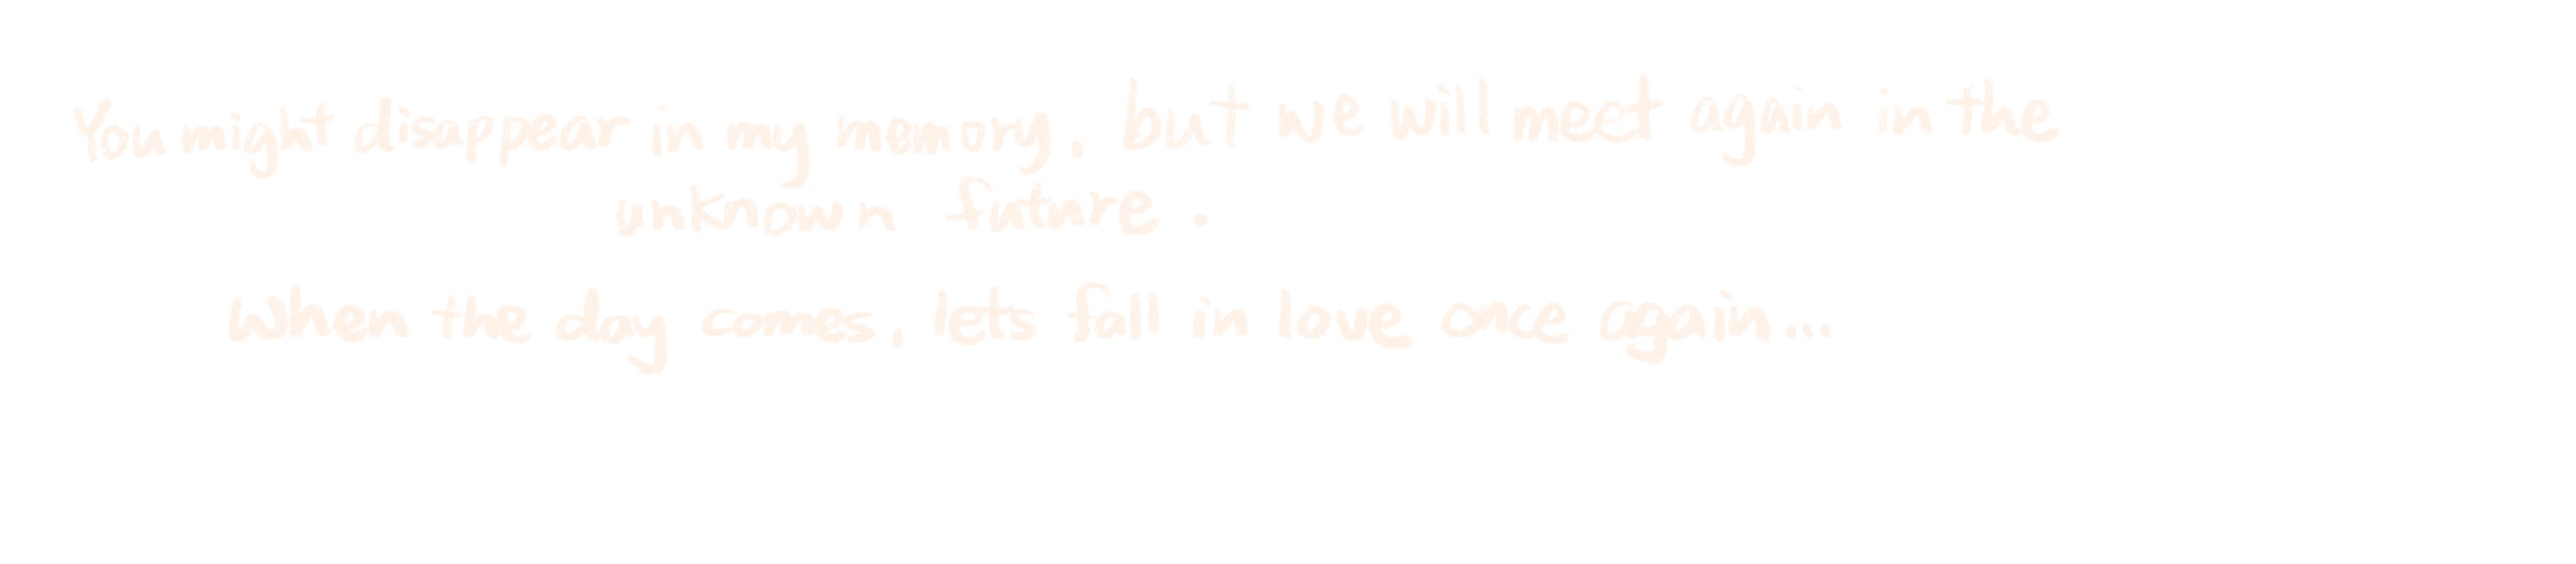 You might disappear in my memory, but we will meet again in the
unknown future.
When the day comes, lets fall in love once again...